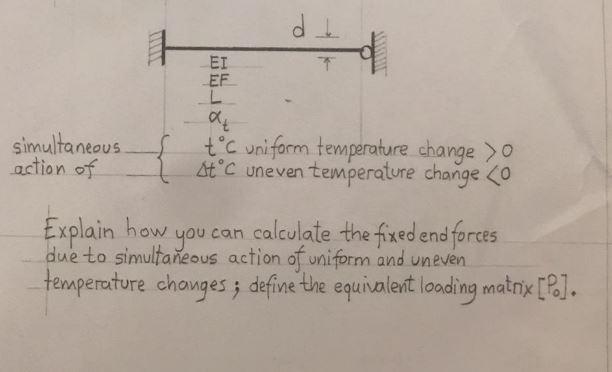 d
EI
EF
L
αt
simultaneous action of { t°C uniform temperature change >0
Δt°C uneven temperature change <0
Explain how you can calculate the fixed end forces
due to simultaneous action of uniform and uneven
temperature changes; define the equivalent loading matrix [P₀].